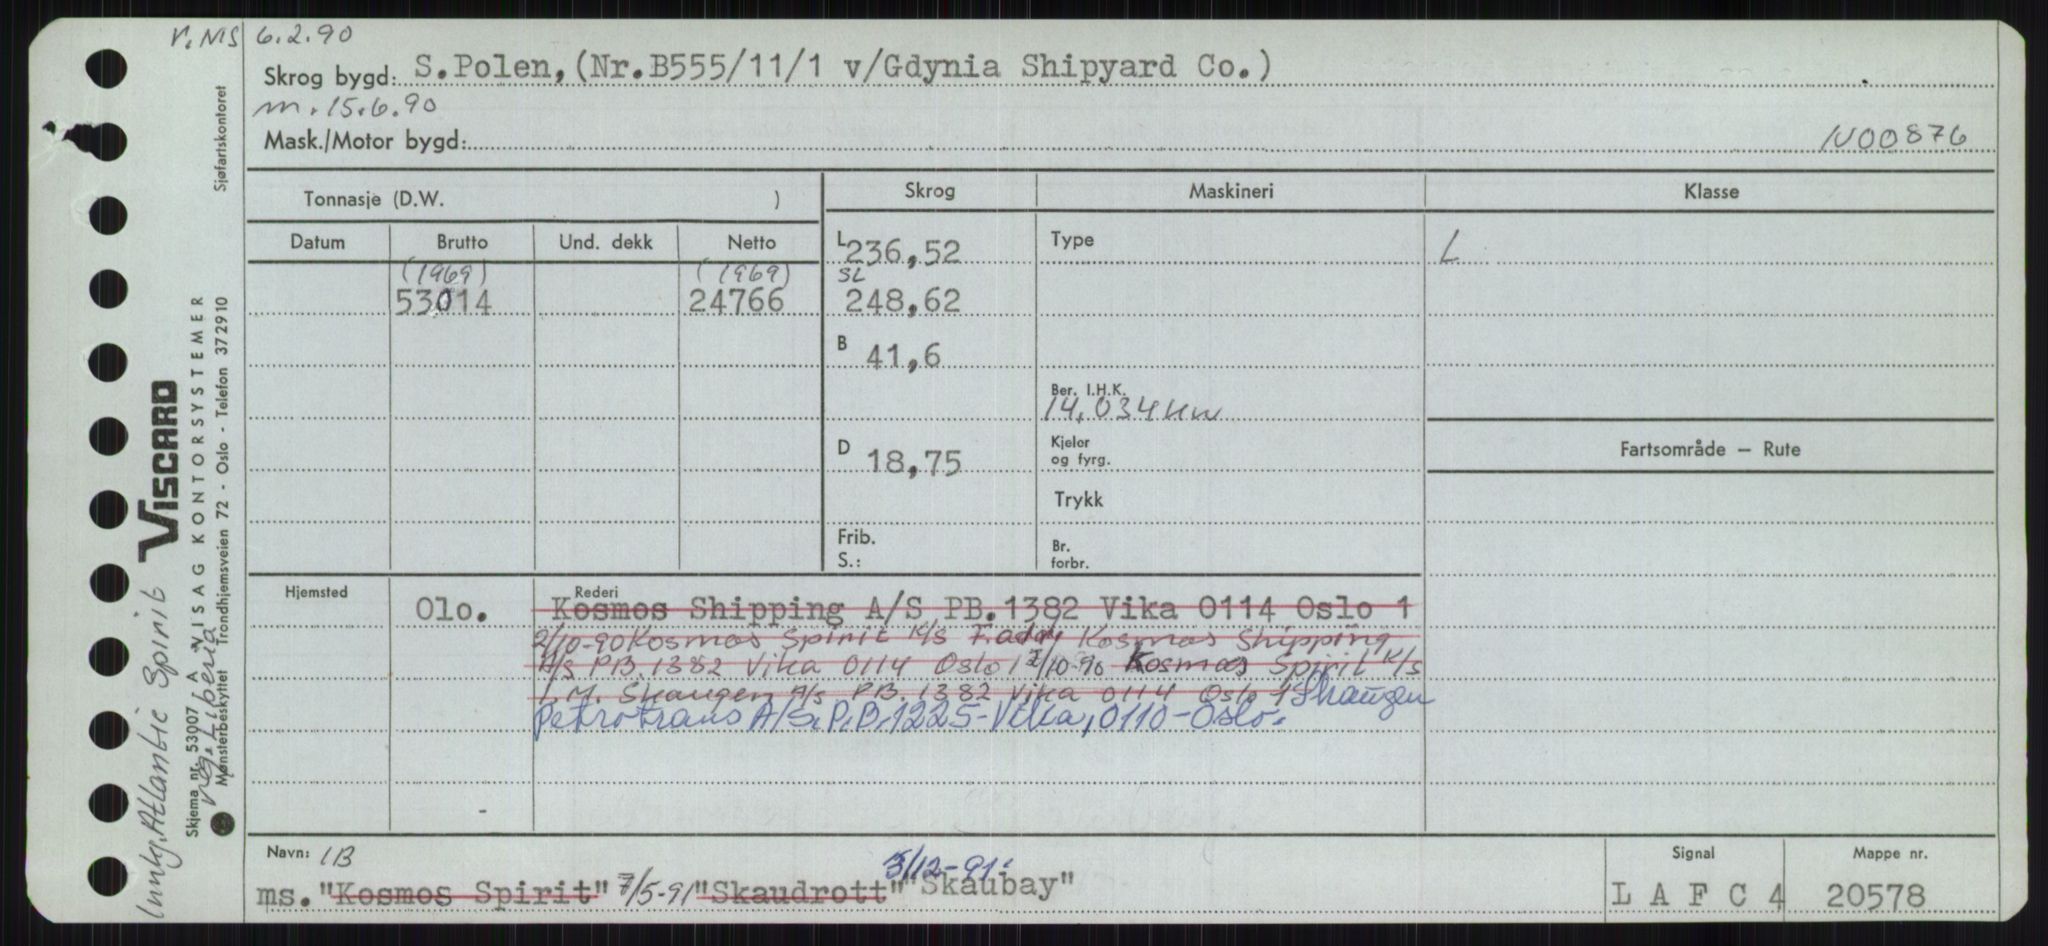 n.MS 6.2.90
Skrog bygd: S.Polen,(Nr.B555/11/1 v/Gdynia Shipyard Co.)
m.15.6.90
Mask./Motor bygd:
N00876
Tonnasje (D.W. )
Skrog
Maskineri
Klasse
Datum
Brutto
Und. dekk
Netto
L 236,52
Type
L
(1969)
(1969)
SL
53014
24766
248,62
B 41,6
Ber. I.H.K.
14,034 kw
D 18,75
Kjeler
og fyrg.
Fartsområde — Rute
Trykk
Frib.
S.:
Br.
forbr.
Hjemsted
Olo.
Rederi
Kosmos Shipping A/S PB.1382 Vika 0114 Oslo 1
2/10-90 Kosmos Spirit K/S F.addr Kosmos Shipping
A/s PB. 1382 Vika 0114 Oslo 1 2/10-90 Kosmos Spirit K/s
I.M. Skaugen A/s PB. 1382 Vika 0114 Oslo 1 Skaugen
Petrotrans A/S. P.B. 1225-Vika, 0110-Oslo.
Navn: 1B
3/12-91.
ms. "Kosmos Spirit" 7/5-91 "Skaudrott" "Skaubay"
Signal
L A F C 4
Mappe nr.
20578
Sjøfartskontoret
VISCARD
Skjema nr. 53007 A VISAG KONTORSYSTEMER
Mønsterbeskyttet Trondhjemsveien 72 - Oslo - Telefon 372910
Innkj. Atlantic Spirit
reg. Liberia